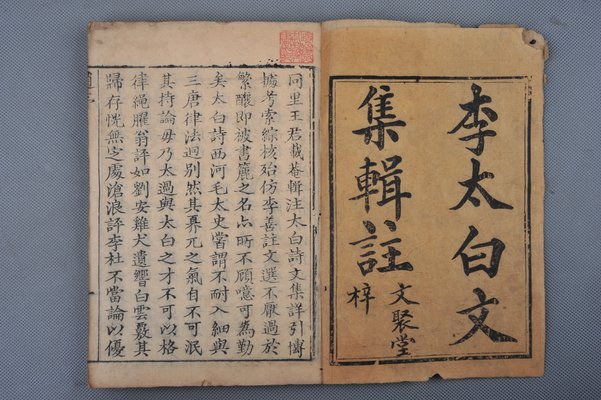 李太白文
集輯註
文聚堂
梓
同里王君載菴輯注太白詩文集詳引博
據考索綜核殆仿李善註文選不厭過於
繁釀即被書簏之名亦所不顧噫可為勤
矣太白詩西河毛太史嘗謂不耐入細與
三唐律法迥別然其真元之氣自不可泯
其持論毋乃太過與太白之才不可以格
律繩臞翁評如劉安雞犬遺響白雲覈其
歸存恍無定處滄浪評李杜不當論以優